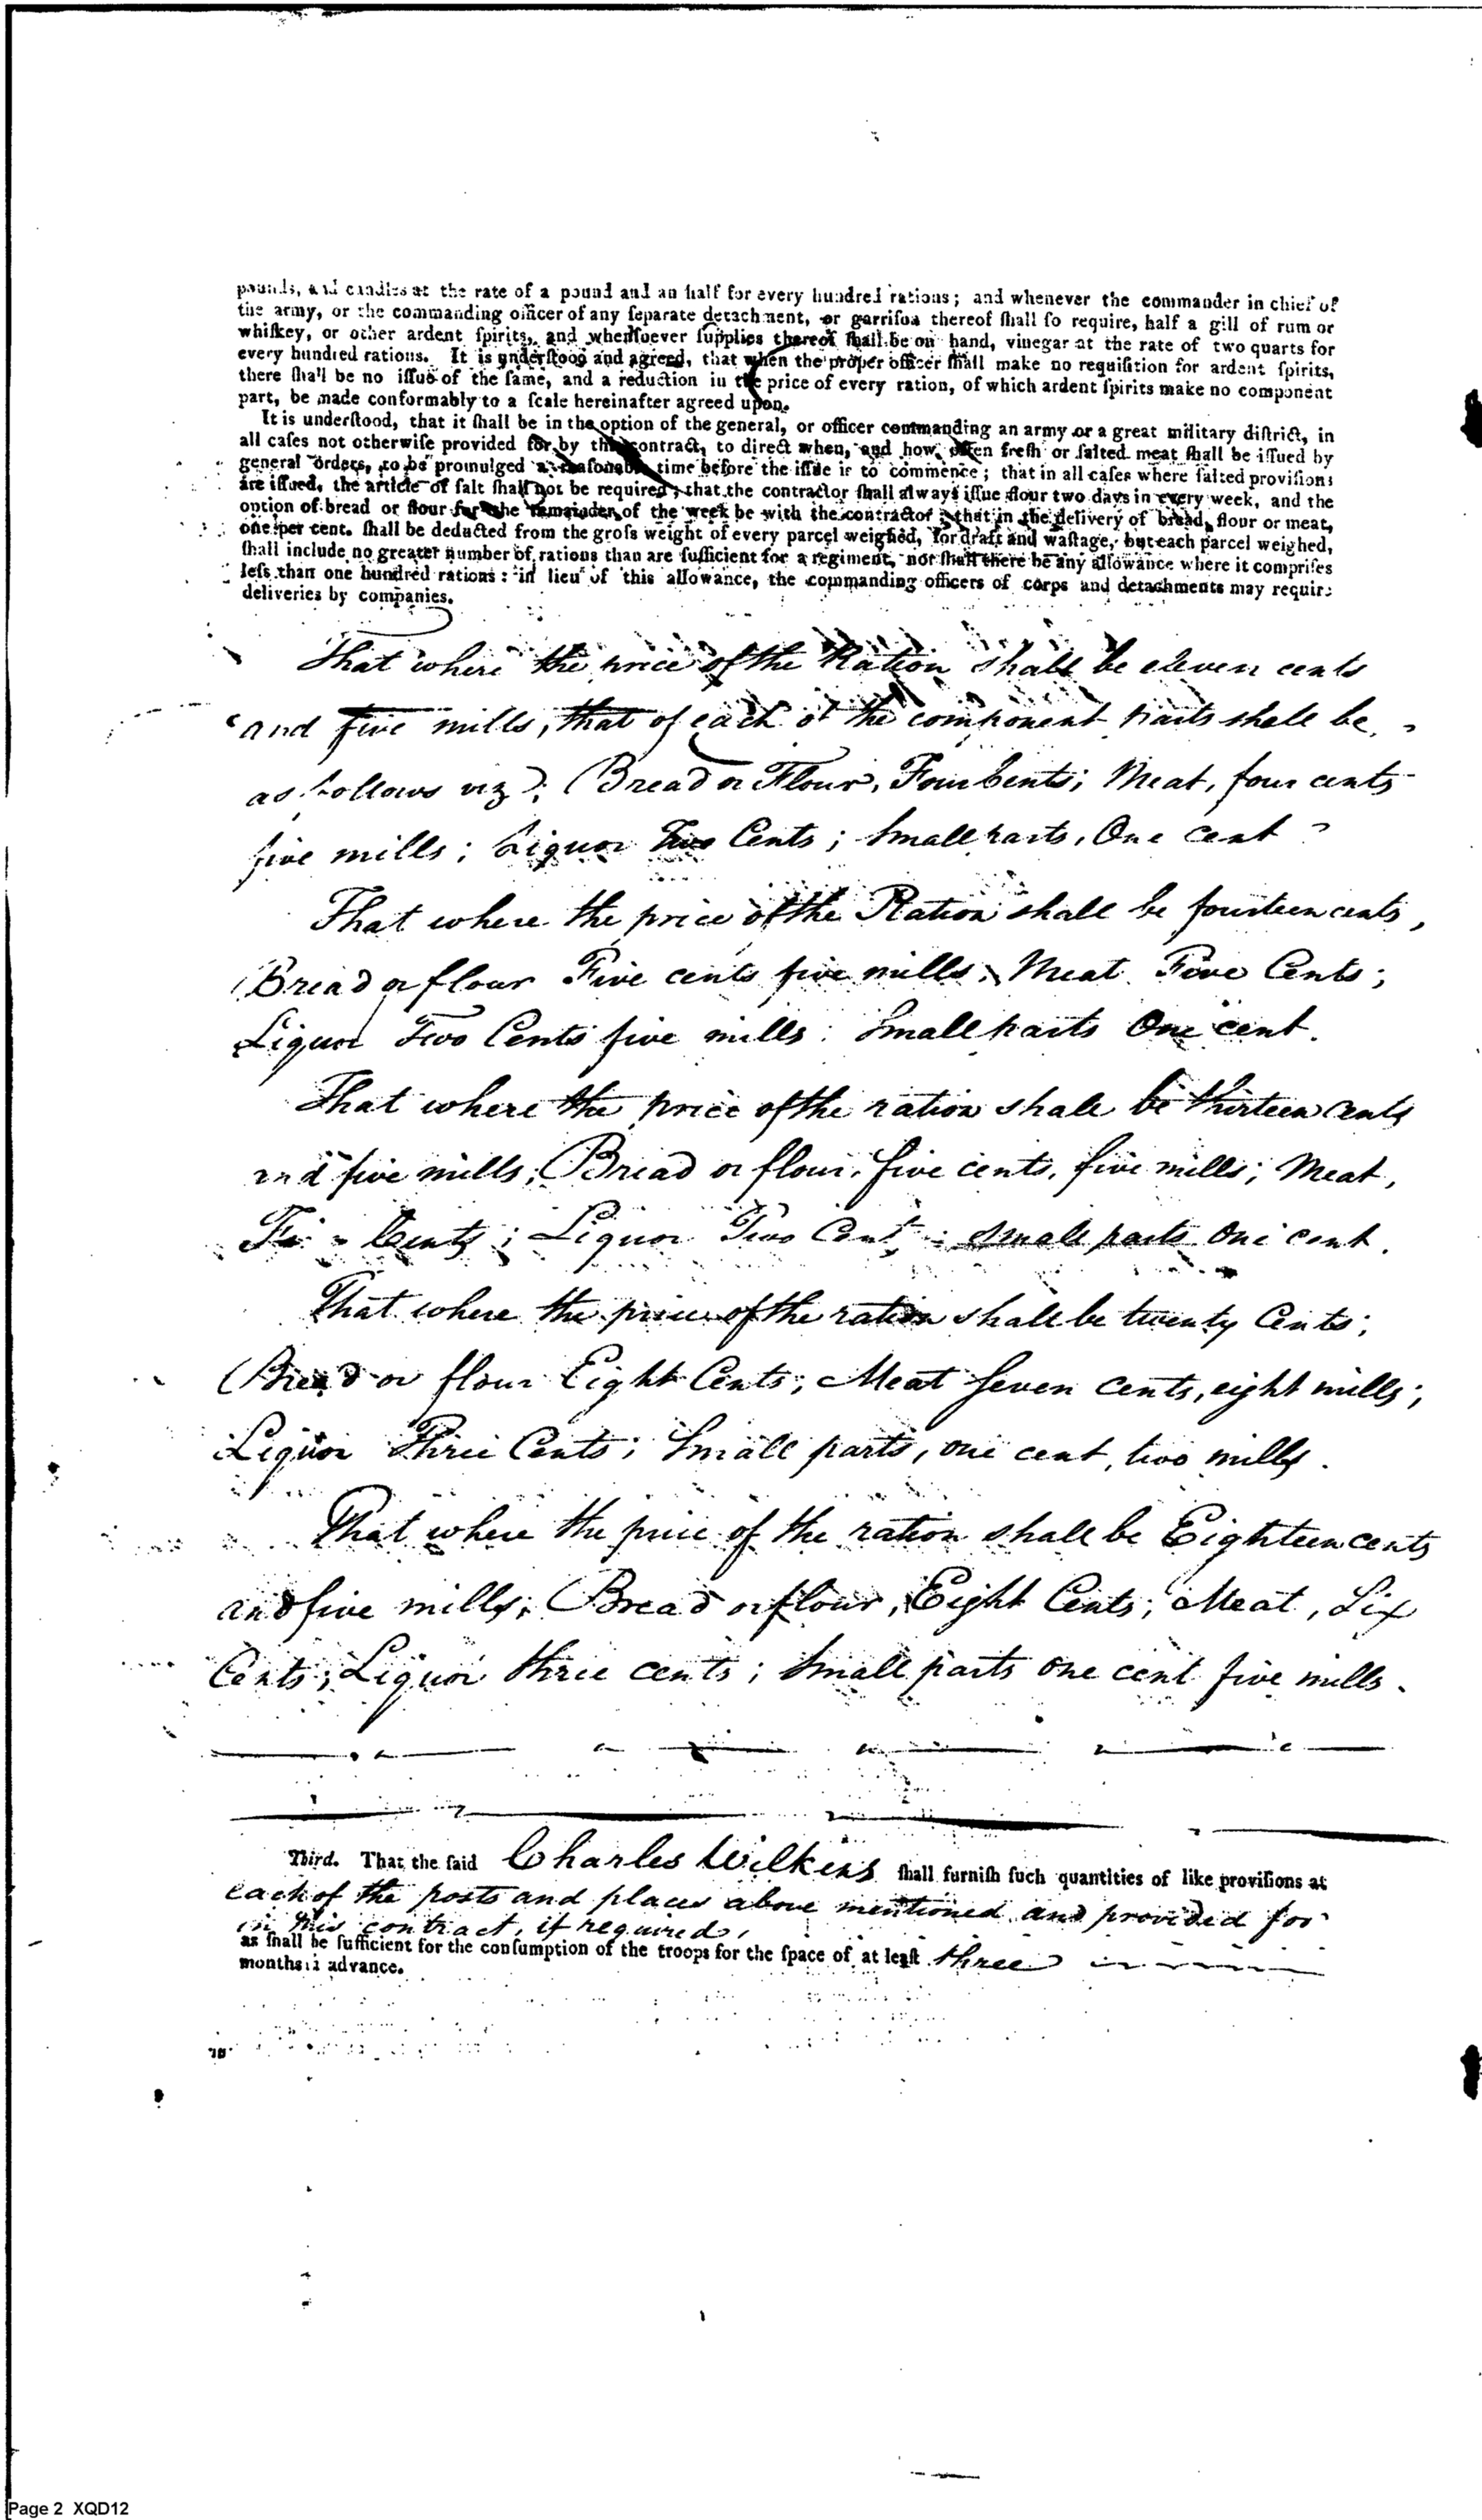 pounds, and candles at the rate of a pound and an half for every hundred rations; and whenever the commander in chief of
the army, or the commanding officer of any ſeparate detachment, or garriſon thereof ſhall ſo require, half a gill of rum or
whiſkey, or other ardent ſpirits, and whenſoever ſupplies thereof ſhall be on hand, vinegar at the rate of two quarts for
every hundred rations. It is underſtood and agreed, that when the proper officer ſhall make no requiſition for ardent ſpirits,
there ſhall be no iſſue of the ſame, and a reduction in the price of every ration, of which ardent ſpirits make no component
part, be made conformably to a ſcale hereinafter agreed upon.
It is underſtood, that it ſhall be in the option of the general, or officer commanding an army or a great military diſtrict, in
all caſes not otherwiſe provided for by this contract, to direct when, and how often freſh or ſalted meat ſhall be iſſued by
general orders, to be promulged a reaſonable time before the iſſue is to commence; that in all caſes where ſalted proviſions
are iſſued, the article of ſalt ſhall not be required; that the contractor ſhall always iſſue flour two days in every week, and the
option of bread or flour for the remainder of the week be with the contractor; that in the delivery of bread, flour or meat,
one per cent. ſhall be deducted from the groſs weight of every parcel weighed, for draft and waſtage, but each parcel weighed,
ſhall include no greater number of rations than are ſufficient for a regiment, nor ſhall there be any allowance where it compriſes
leſs than one hundred rations: in lieu of this allowance, the commanding officers of corps and detachments may require
deliveries by companies.
That where the price of the Ration shall be eleven cents
and five mills, that of each of the component parts shall be
as follows viz: Bread or Flour, Four Cents; Meat, four cents
five mills; Liquor Two Cents; Small parts, One Cent
That where the price of the Ration shall be fourteen cents,
Bread or flour Five cents five mills; Meat Five Cents;
Liquor Two Cents five mills; Small parts One cent.
That where the price of the ration shall be thirteen cents
and five mills; Bread or flour, five cents, five mills; Meat,
Cents; Liquor Two Cents; Small parts One cent.
That where the price of the ration shall be twenty Cents;
Bread or flour Eight Cents; Meat Seven Cents, eight mills;
Liquor Three Cents; Small parts, one cent, two mills.
That where the price of the ration shall be Eighteen cents
and five mills; Bread or flour, Eight Cents; Meat, Six
Cents; Liquor three cents; Small parts one cent five mills.
Third. That the ſaid Charles Wilkins ſhall furniſh ſuch quantities of like proviſions at
each of the posts and places above mentioned and provided for
in this contract, if required,
as ſhall be ſufficient for the conſumption of the troops for the ſpace of at leaſt three
months in advance.
Page 2 XQD12